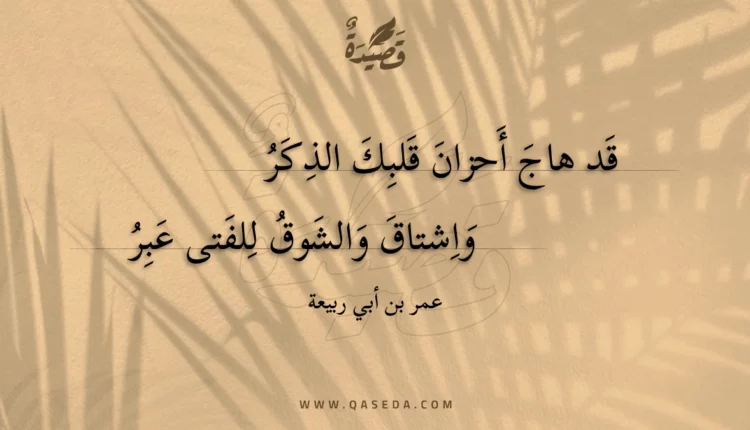 قَصِيْدَةٌ
قَد هاجَ أَحزانَ قَلبِكَ الذِكَرُ
وَاِشتاقَ وَالشَوقُ لِلفَتى عَبِرُ
عمر بن أبي ربيعة
WWW.QASEDA.COM